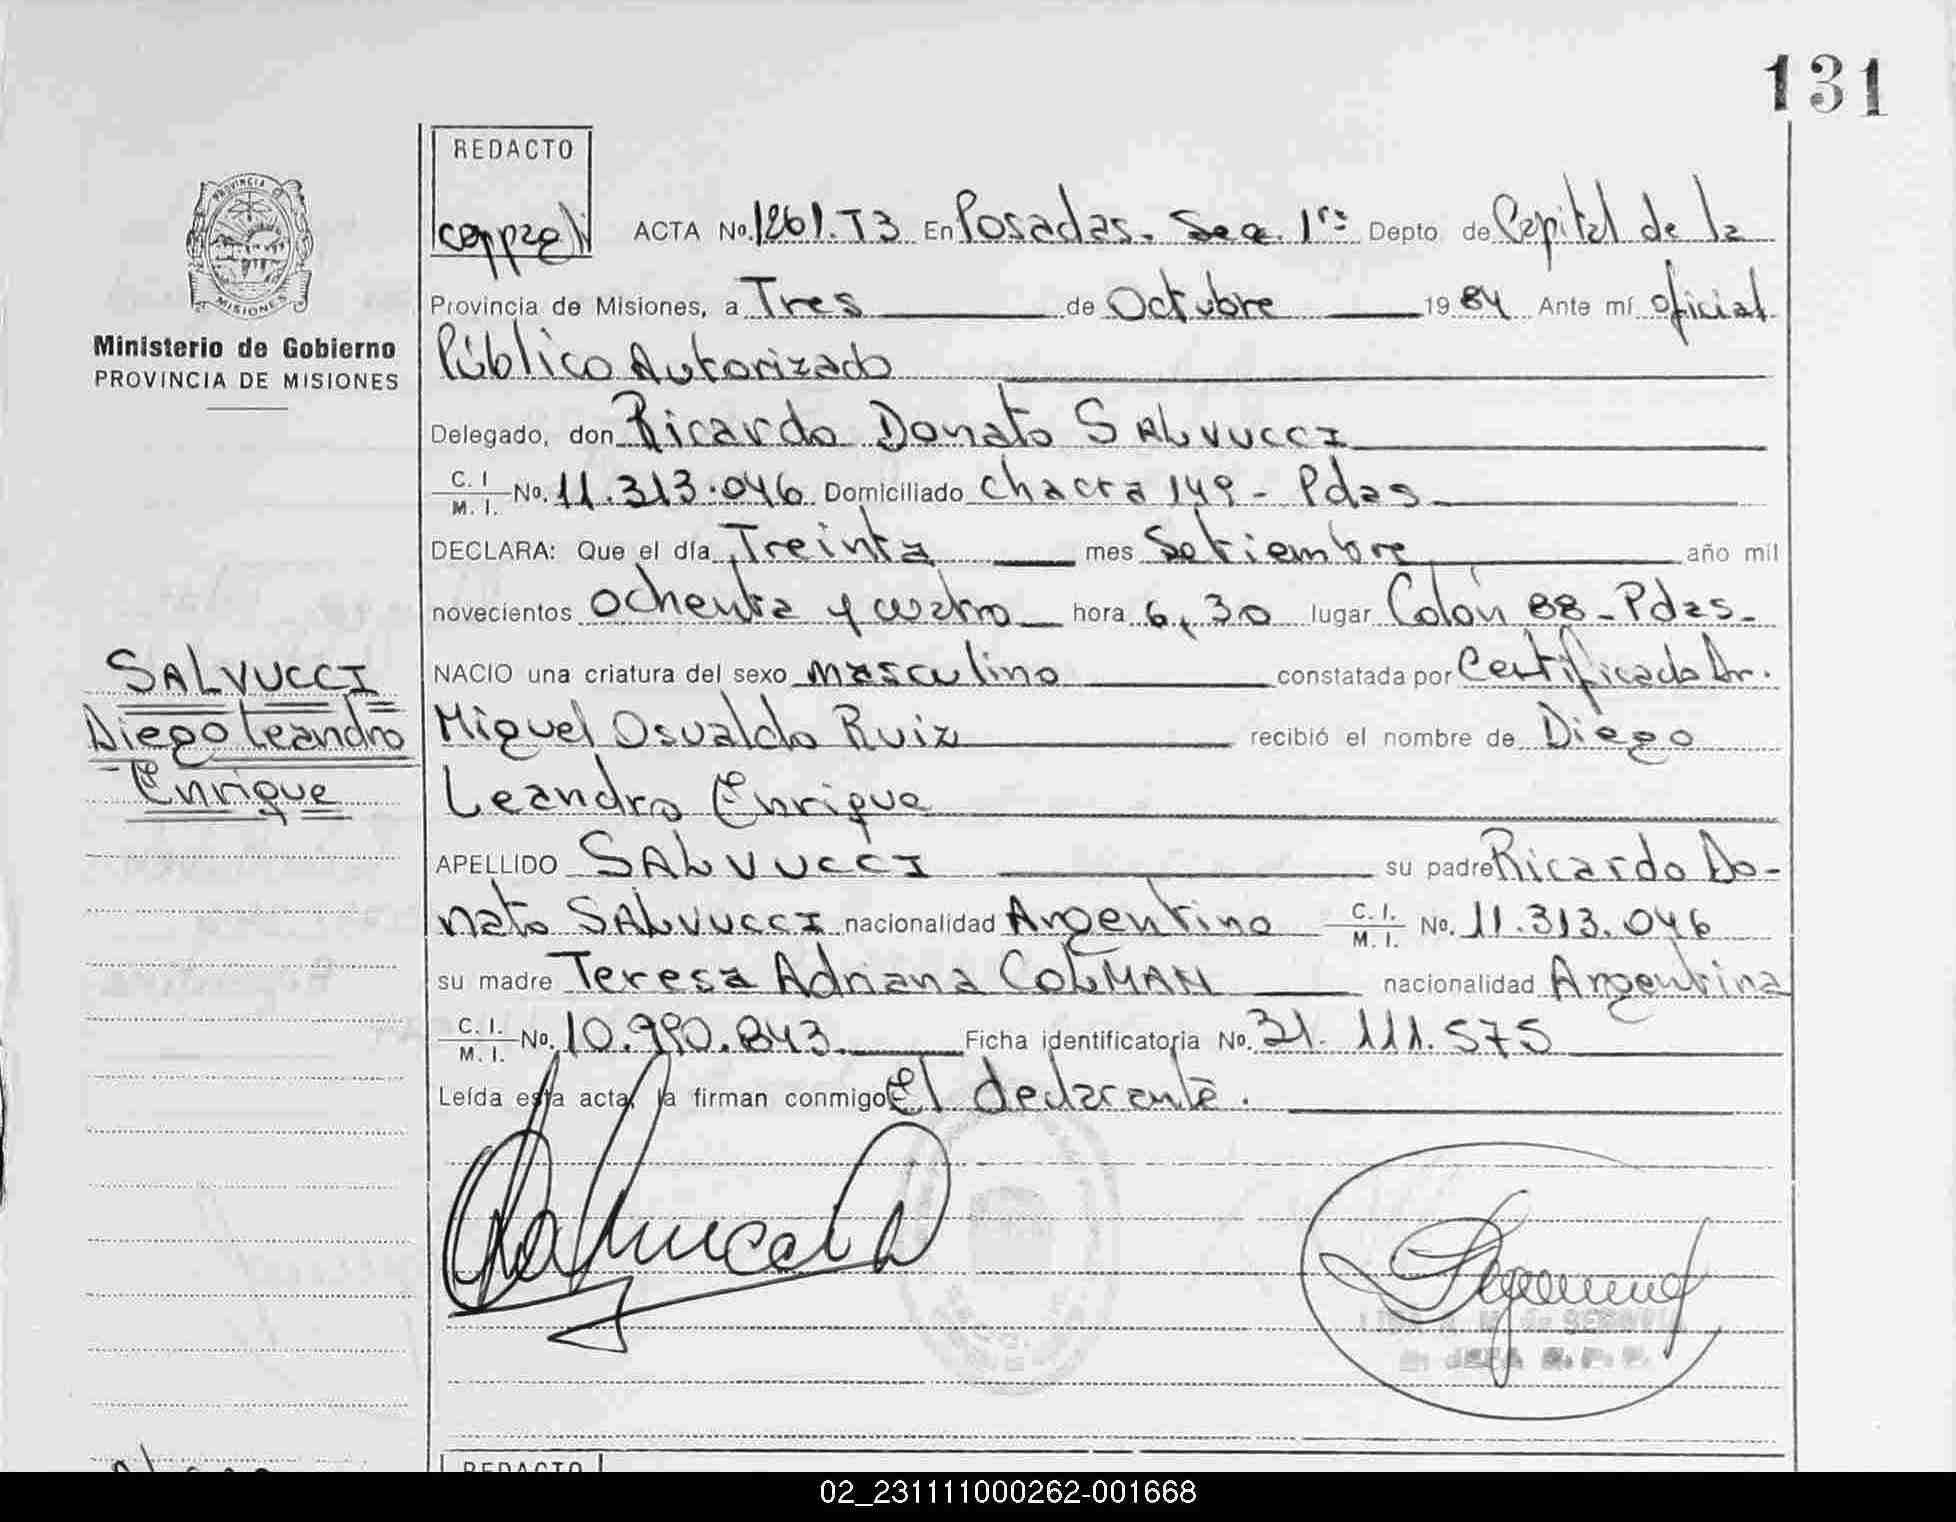 131
REDACTO
ACTA No. 1261. T3 En Posadas. Sec. 1ra Depto de Capital de la
Provincia de Misiones, a Tres de Octubre 1984 Ante mí oficial
Ministerio de Gobierno
PROVINCIA DE MISIONES
Público Autorizado
Delegado, don Ricardo Donato SALVUCCI
C. I. M. I. No. 11.313.046 Domiciliado chacra 149 - Pdas
DECLARA: Que el día Treinta mes Setiembre año mil
novecientos ochenta y cuatro hora 6,30 lugar Colón 88 - Pdas -
NACIO una criatura del sexo masculino constatada por Certificado Dr.
SALVUCCI
Diego Leandro
Enrique
Miguel Osvaldo Ruiz recibió el nombre de Diego
Leandro Enrique
APELLIDO SALVUCCI su padre Ricardo Do-
nato SALVUCCI nacionalidad Argentino C. I. M. I. No. 11.313.046
su madre Teresa Adriana COLMAN nacionalidad Argentina
C. I. M. I. No. 10.990.843 Ficha identificatoria No. 31.111.575
Leída esta acta, la firman conmigo El declarante.
REDACTO
02_231111000262-001668